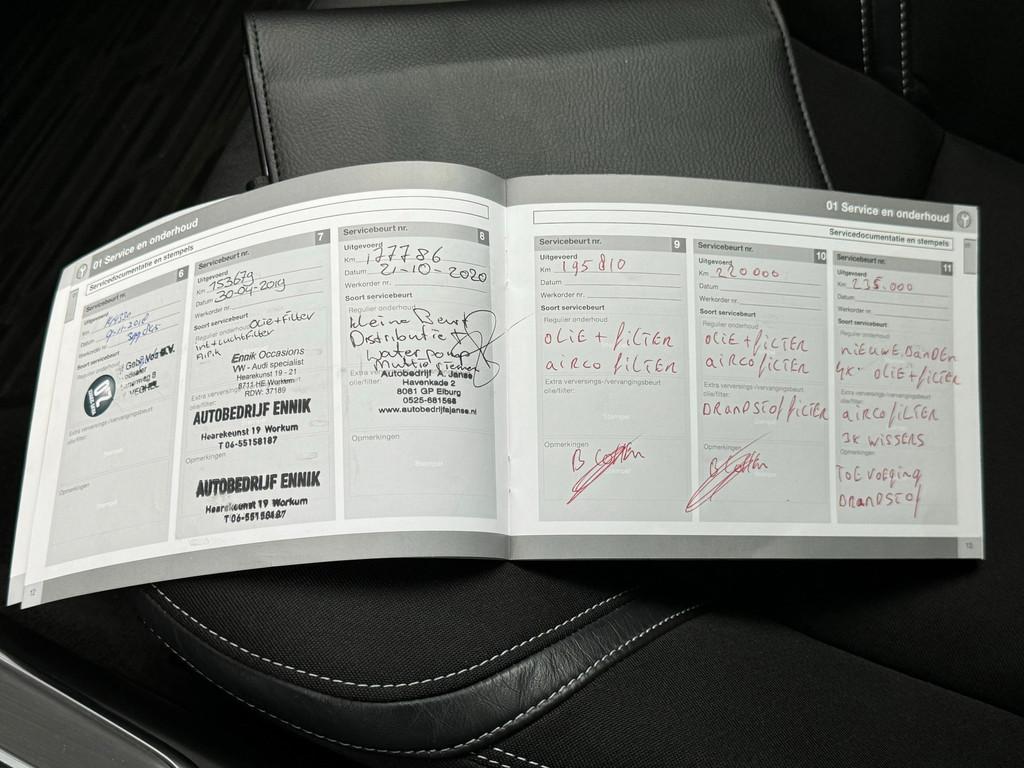 01 Service en onderhoud
Servicedocumentatie en stempels
Servicebeurt nr. 6
Uitgevoerd
Km
Datum 9-11-2018
Werkorder nr.
Soort servicebeurt
Regulier onderhoud
VEGHEL
Extra ververs
olie/filter:
Opmerkingen
12
Servicebeurt nr. 7
Uitgevoerd
Km 153679
Datum 30-04-2019
Werkorder nr.
Soort servicebeurt
Regulier onderhoud olie+filter
int+luchtfilter
Ennik Occasions
VW - Audi specialist
Heerekunst 19 - 21
8711 HE Workum
RDW: 37189
AUTOBEDRIJF ENNIK
Heerekeunst 19 Workum
T 06-55158187
Opmerkingen
AUTOBEDRIJF ENNIK
Heerekeunst 19 Workum
T 06-55158187
Servicebeurt nr. 8
Uitgevoerd
Km 177786
Datum 21-10-2020
Werkorder nr.
Soort servicebeurt
Regulier onderhoud
kleine Beurt
Distributie &
waterpomp
Multiriemen
Autobedrijf A. Janse
Havenkade 2
8081 GP Elburg
0525-681568
www.autobedrijfajanse.nl
Opmerkingen
01 Service en onderhoud
Servicedocumentatie en stempels
Servicebeurt nr. 9
Uitgevoerd
Km 195810
Datum
Werkorder nr.
Soort servicebeurt
Regulier onderhoud
OLiE + filTER
aiRco filTER
Extra verversings-/vervangingsbeurt
olie/filter:
Stempel
Opmerkingen
Servicebeurt nr. 10
Uitgevoerd
Km 220000
Datum
Werkorder nr.
Soort servicebeurt
Regulier onderhoud
OLiE +filTER
aiRco filTER
Extra verversings-/vervangingsbeurt
olie/filter:
BRANDSTOf filTER
Opmerkingen
Servicebeurt nr. 11
Uitgevoerd
Km 235.000
Datum
Werkorder nr.
Soort servicebeurt
Regulier onderhoud
NiEUWE BANDEN
4x OLiE +filTER
Extra verversings-/vervangingsbeurt
olie/filter:
aiRco filTER
3x WiSSERS
Opmerkingen
ToEVOEging
BRANDSTOf
13